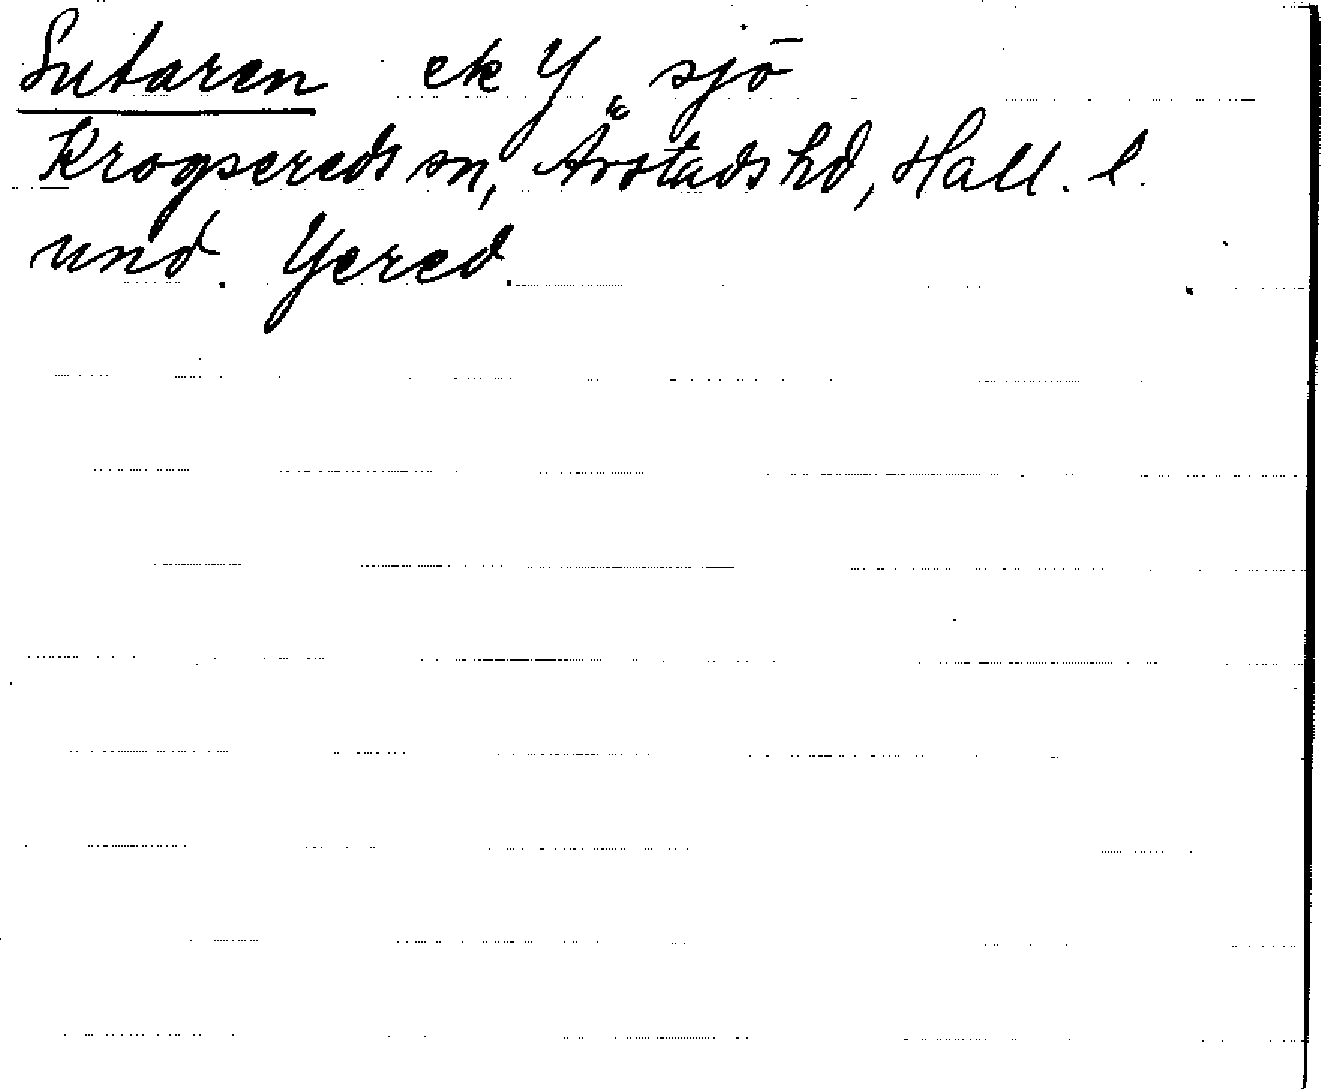 Sutaren ek Y, sjö
Krogsereds sn, Årstads hd, Hall. l.
und. Yered.